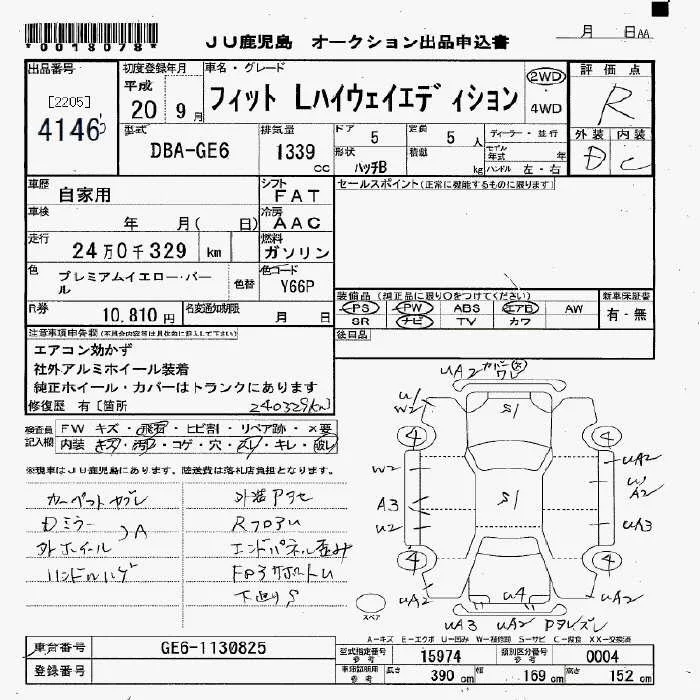 *0018078*
JU鹿児島 オークション出品申込書
月 日AA
出品番号
[2205]
4146
初度登録年月
平成
20 9月
車名・グレード
フィット Lハイウェイエディション
2WD
・
4WD
評価点
R
外装 内装
D C
型式
DBA-GE6
排気量
1339
cc
ドア 5
定員 5人
形状 ハッチB
積載 kg
ディーラー・並行
モデル年式 年
ハンドル 左・右
車歴
自家用
シフト
FAT
車検
年 月( 日)
冷房
AAC
走行
24万0千329 km
燃料
ガソリン
色
プレミアムイエロー・パール
色替
色コード
Y66P
R券
10,810円
名変通知期限
月 日
セールスポイント(正常に機能するものに限ります)
装備品(純正品に限り○をつけてください)
PS PW ABS エアB AW
SR ナビ TV カワ
新車保証書
有・無
後日品
注意事項申告欄(不具合内容等は具体的に記入して下さい)
エアコン効かず
社外アルミホイール装着
純正ホイール・カバーはトランクにあります
修復歴 有[箇所
240329km
検査員記入欄
FW キズ・飛石・ヒビ割・リペア跡・×要
内装・キズ・汚れ・コゲ・穴・スリ・キレ・破レ
※現車はJU鹿児島にあります。陸送費は落札店負担となります。
カーペットヤブレ
Dミラー
外ホイール
}A
ハンドルハゲ
外装アセ
Rフロアu
エンドパネル歪み
下廻りS
UA2 カバーワレ
U/
W2
S1
4
4
W2
UA2
U/
A2
A3
U2
S1
UA3
4
4
UA2
U4
UA2
スペア
UA3 UA2 Pヲレズレ
A=キズ E=エクボ U=凹み W=補修跡 S=サビ C=腐食 XX=交換済
車台番号
GE6-1130825
登録番号
型式指定番号
参考
15974
類別区分番号
参考
0004
車検証明用
参考
長さ
390 cm
幅
169 cm
高さ
152 cm